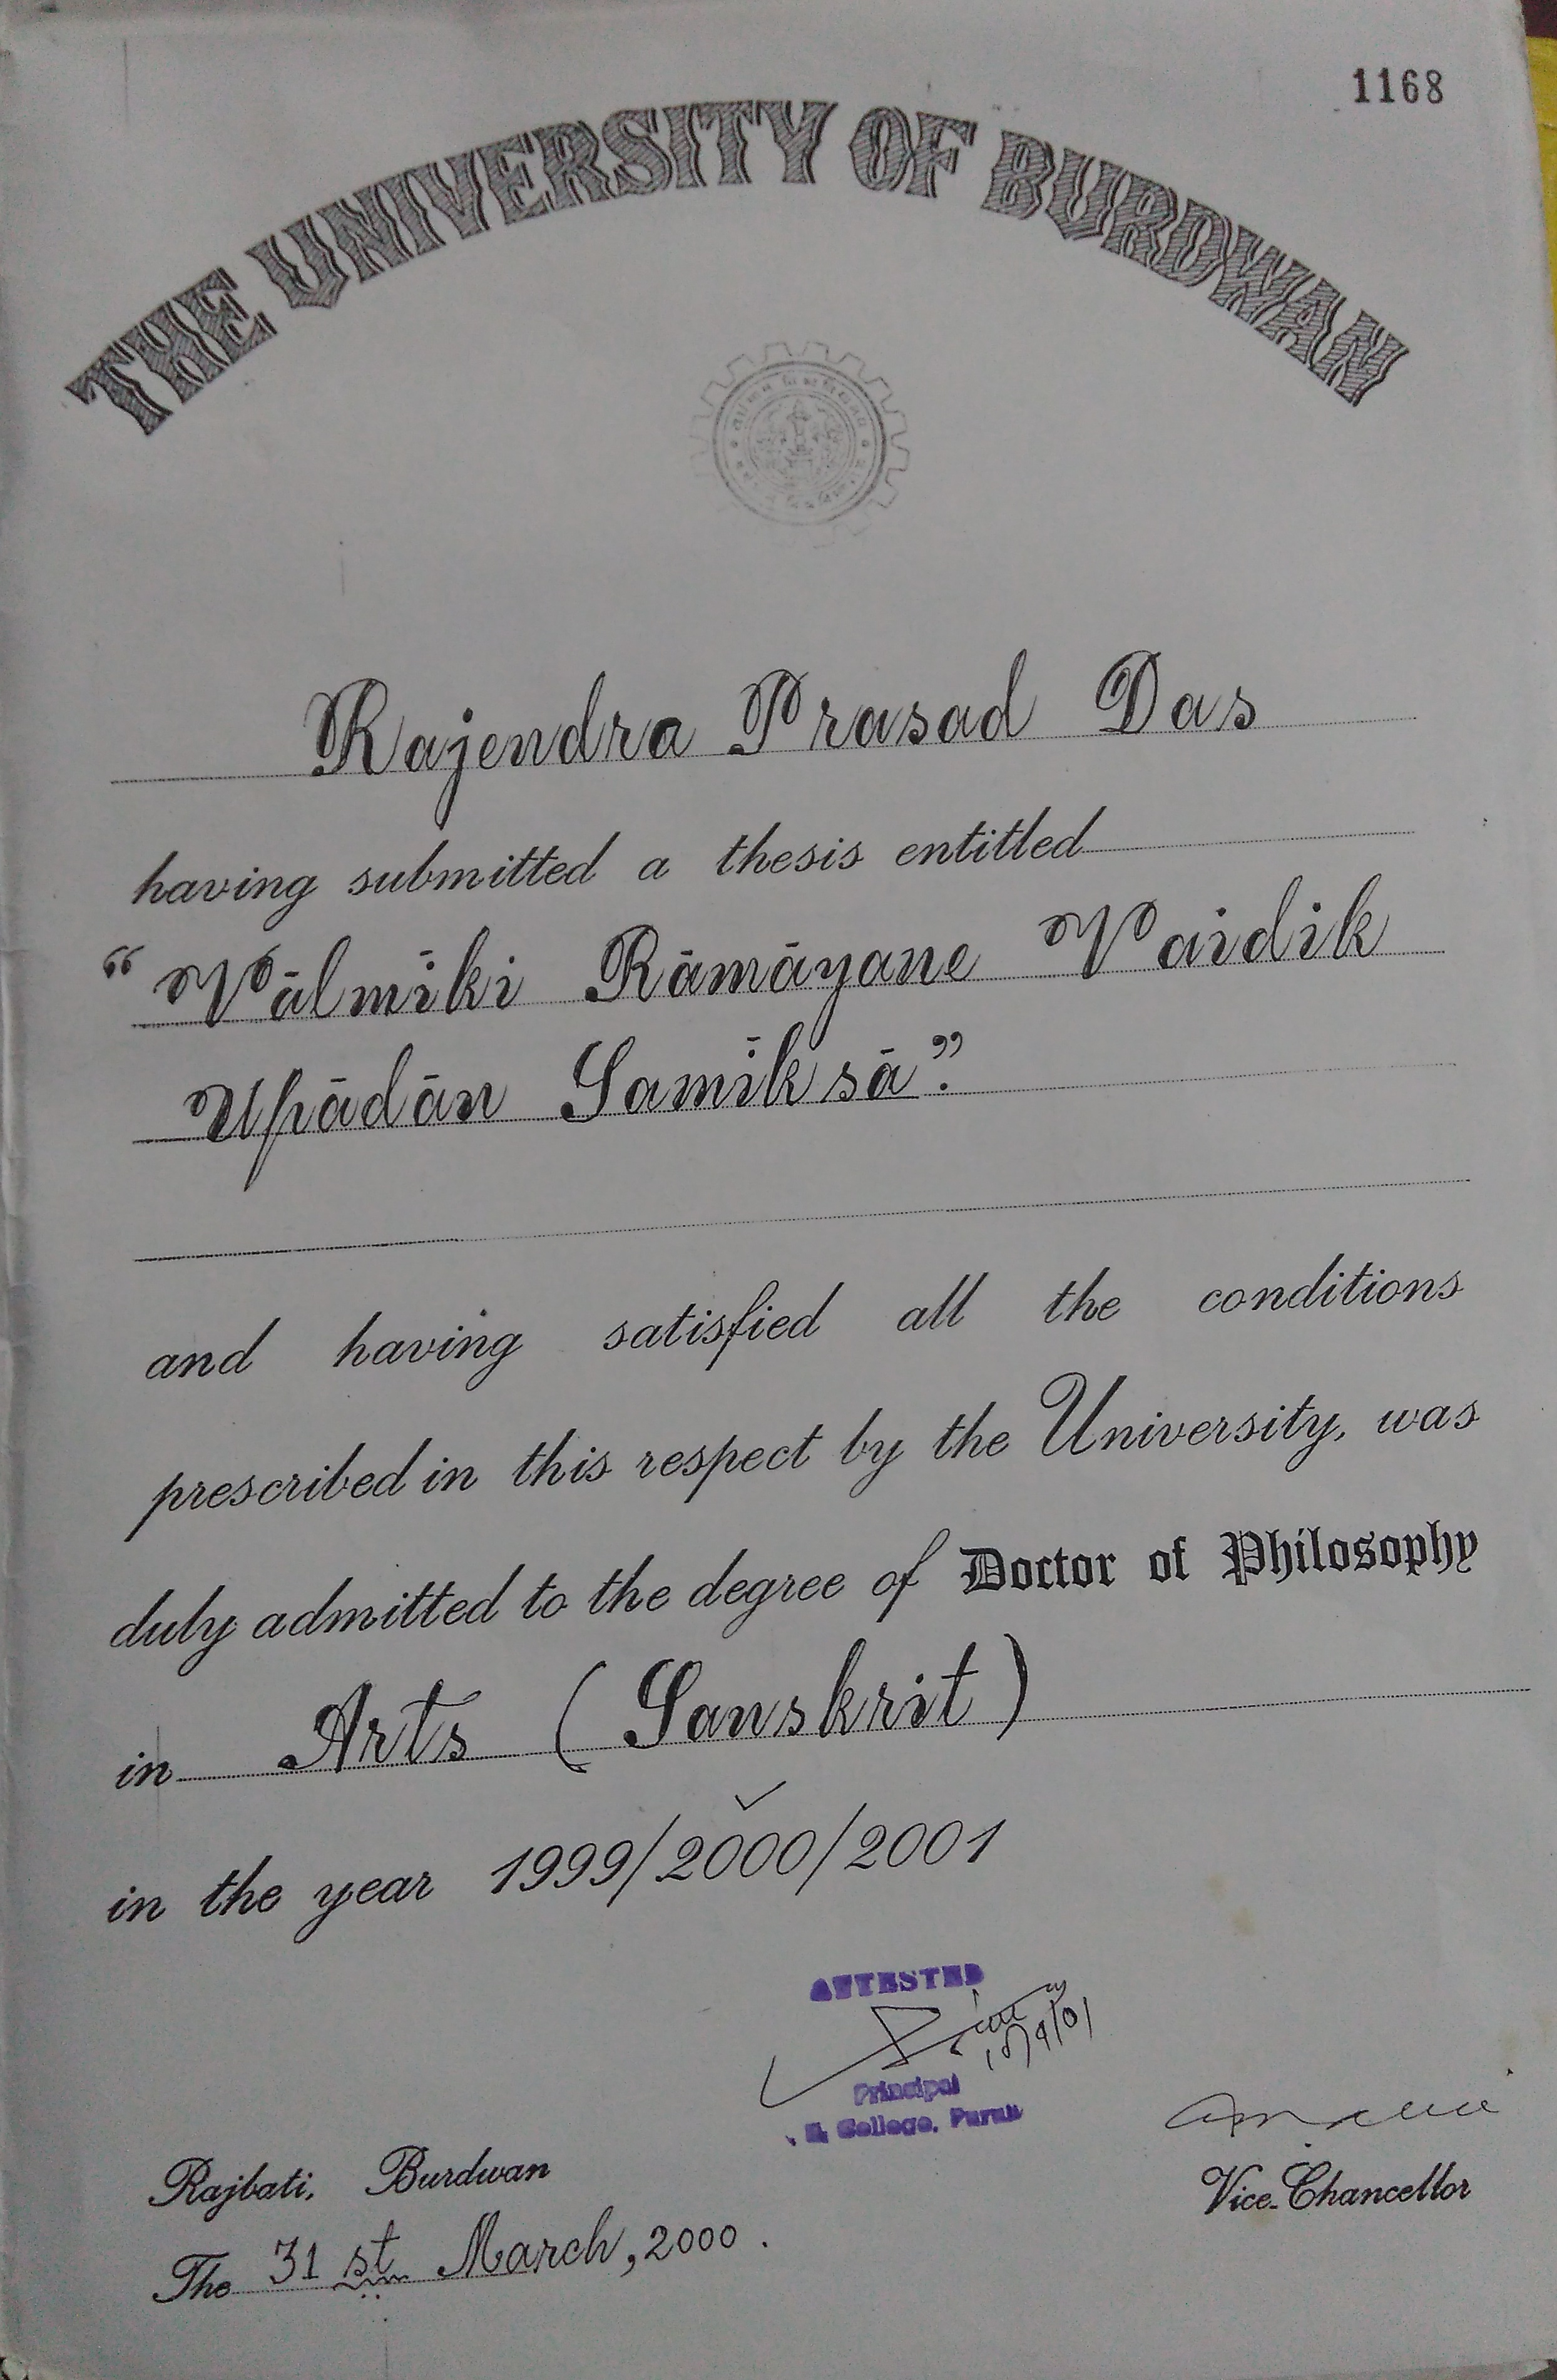 1168
THE UNIVERSITY OF BURDWAN
Rajendra Prasad Das
having submitted a thesis entitled
“Vālmīki Rāmāyane Vaidik
Upādān Samīksā”.
and having satisfied all the conditions
prescribed in this respect by the University, was
duly admitted to the degree of Doctor of Philosophy
in Arts (Sanskrit)
in the year 1999/2000/2001
ATTESTED
Principal
College,
Rajbati, Burdwan
The 31st March, 2000.
Vice-Chancellor